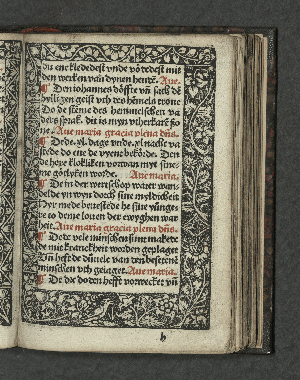 du en kledede st vnde vöredest mit
den werken van dynen henden. Aue.
¶ Den iohannes döffte vñ sach dē
hylligen geist vth des hēmels trone
Do de stēme des hemmelschen va
ders sprak. dit is myn vtherkarē sö
ne. Aue maria gracia plena dñs.
¶ De de .xl. dage vnde .xl. nacht va
stede do ene de vyent bekörde. Den
de here klokliken vorwan myt sine
me götlyken worde. Aue maria.
¶ De in der werschop water wan
delde yn wyn dorch sine myldicheit
Dar mede beuestede he sine yünge
re to deme louen der ewyghen war
heit. Aue maria gracia plena dñs.
¶ De de vele minschen sunt makete
de mit kranckheit worden geplaget
Vñ hefft de düuele van den beseten
minschen vth gelaget. Aue maria.
¶ De dre doden hefft vorwecket vñ
h